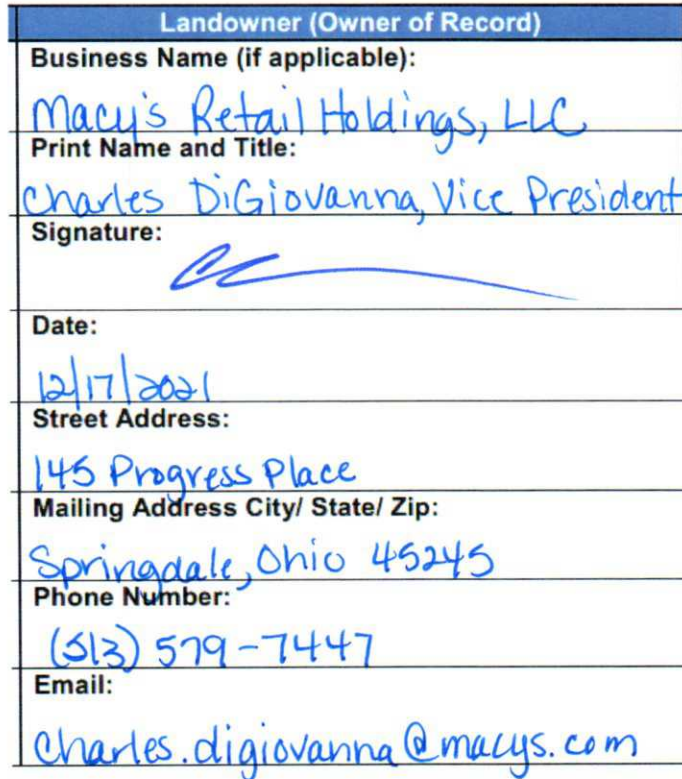 Landowner (Owner of Record)
Business Name (if applicable):
Macy's Retail Holdings, LLC
Print Name and Title:
Charles DiGiovanna, Vice President
Signature:
Date:
12/17/2021
Street Address:
145 Progress Place
Mailing Address City/ State/ Zip:
Springdale, Ohio 45245
Phone Number:
(513) 579-7447
Email:
Charles.digiovanna@macys.com